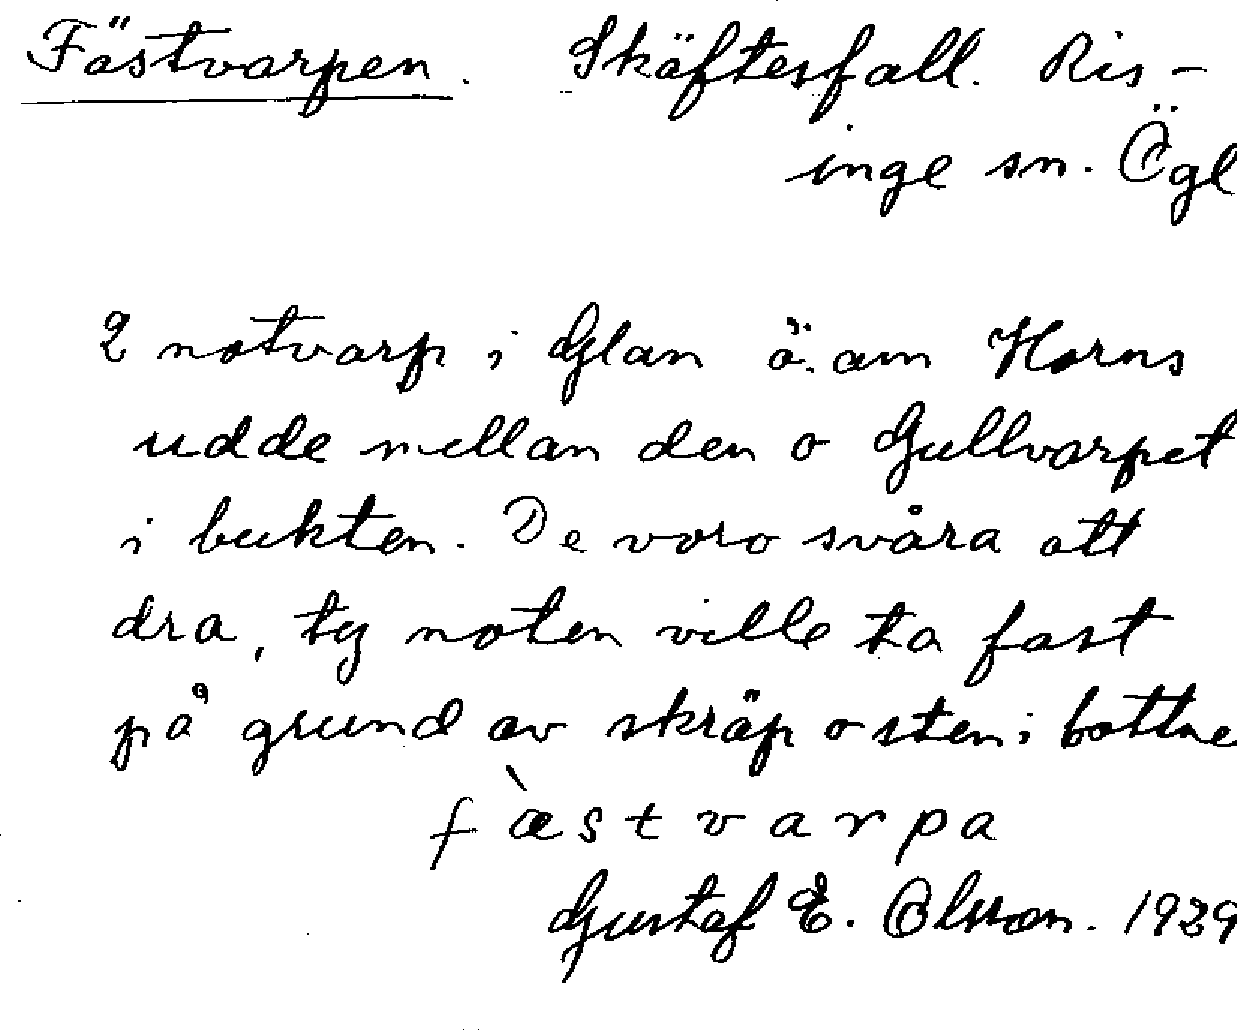 Fästvarpen. Skäftesfall. Ris-
inge sn. Ögl
2 notvarp i Glan ö. om Horns
udde mellan den o Gullvarpet
i bukten. De voro svåra att
dra, ty noten ville ta fast
på grund av skräp o sten i bottne
fæ̀stvarpa
Gustaf E. Olsson. 1929